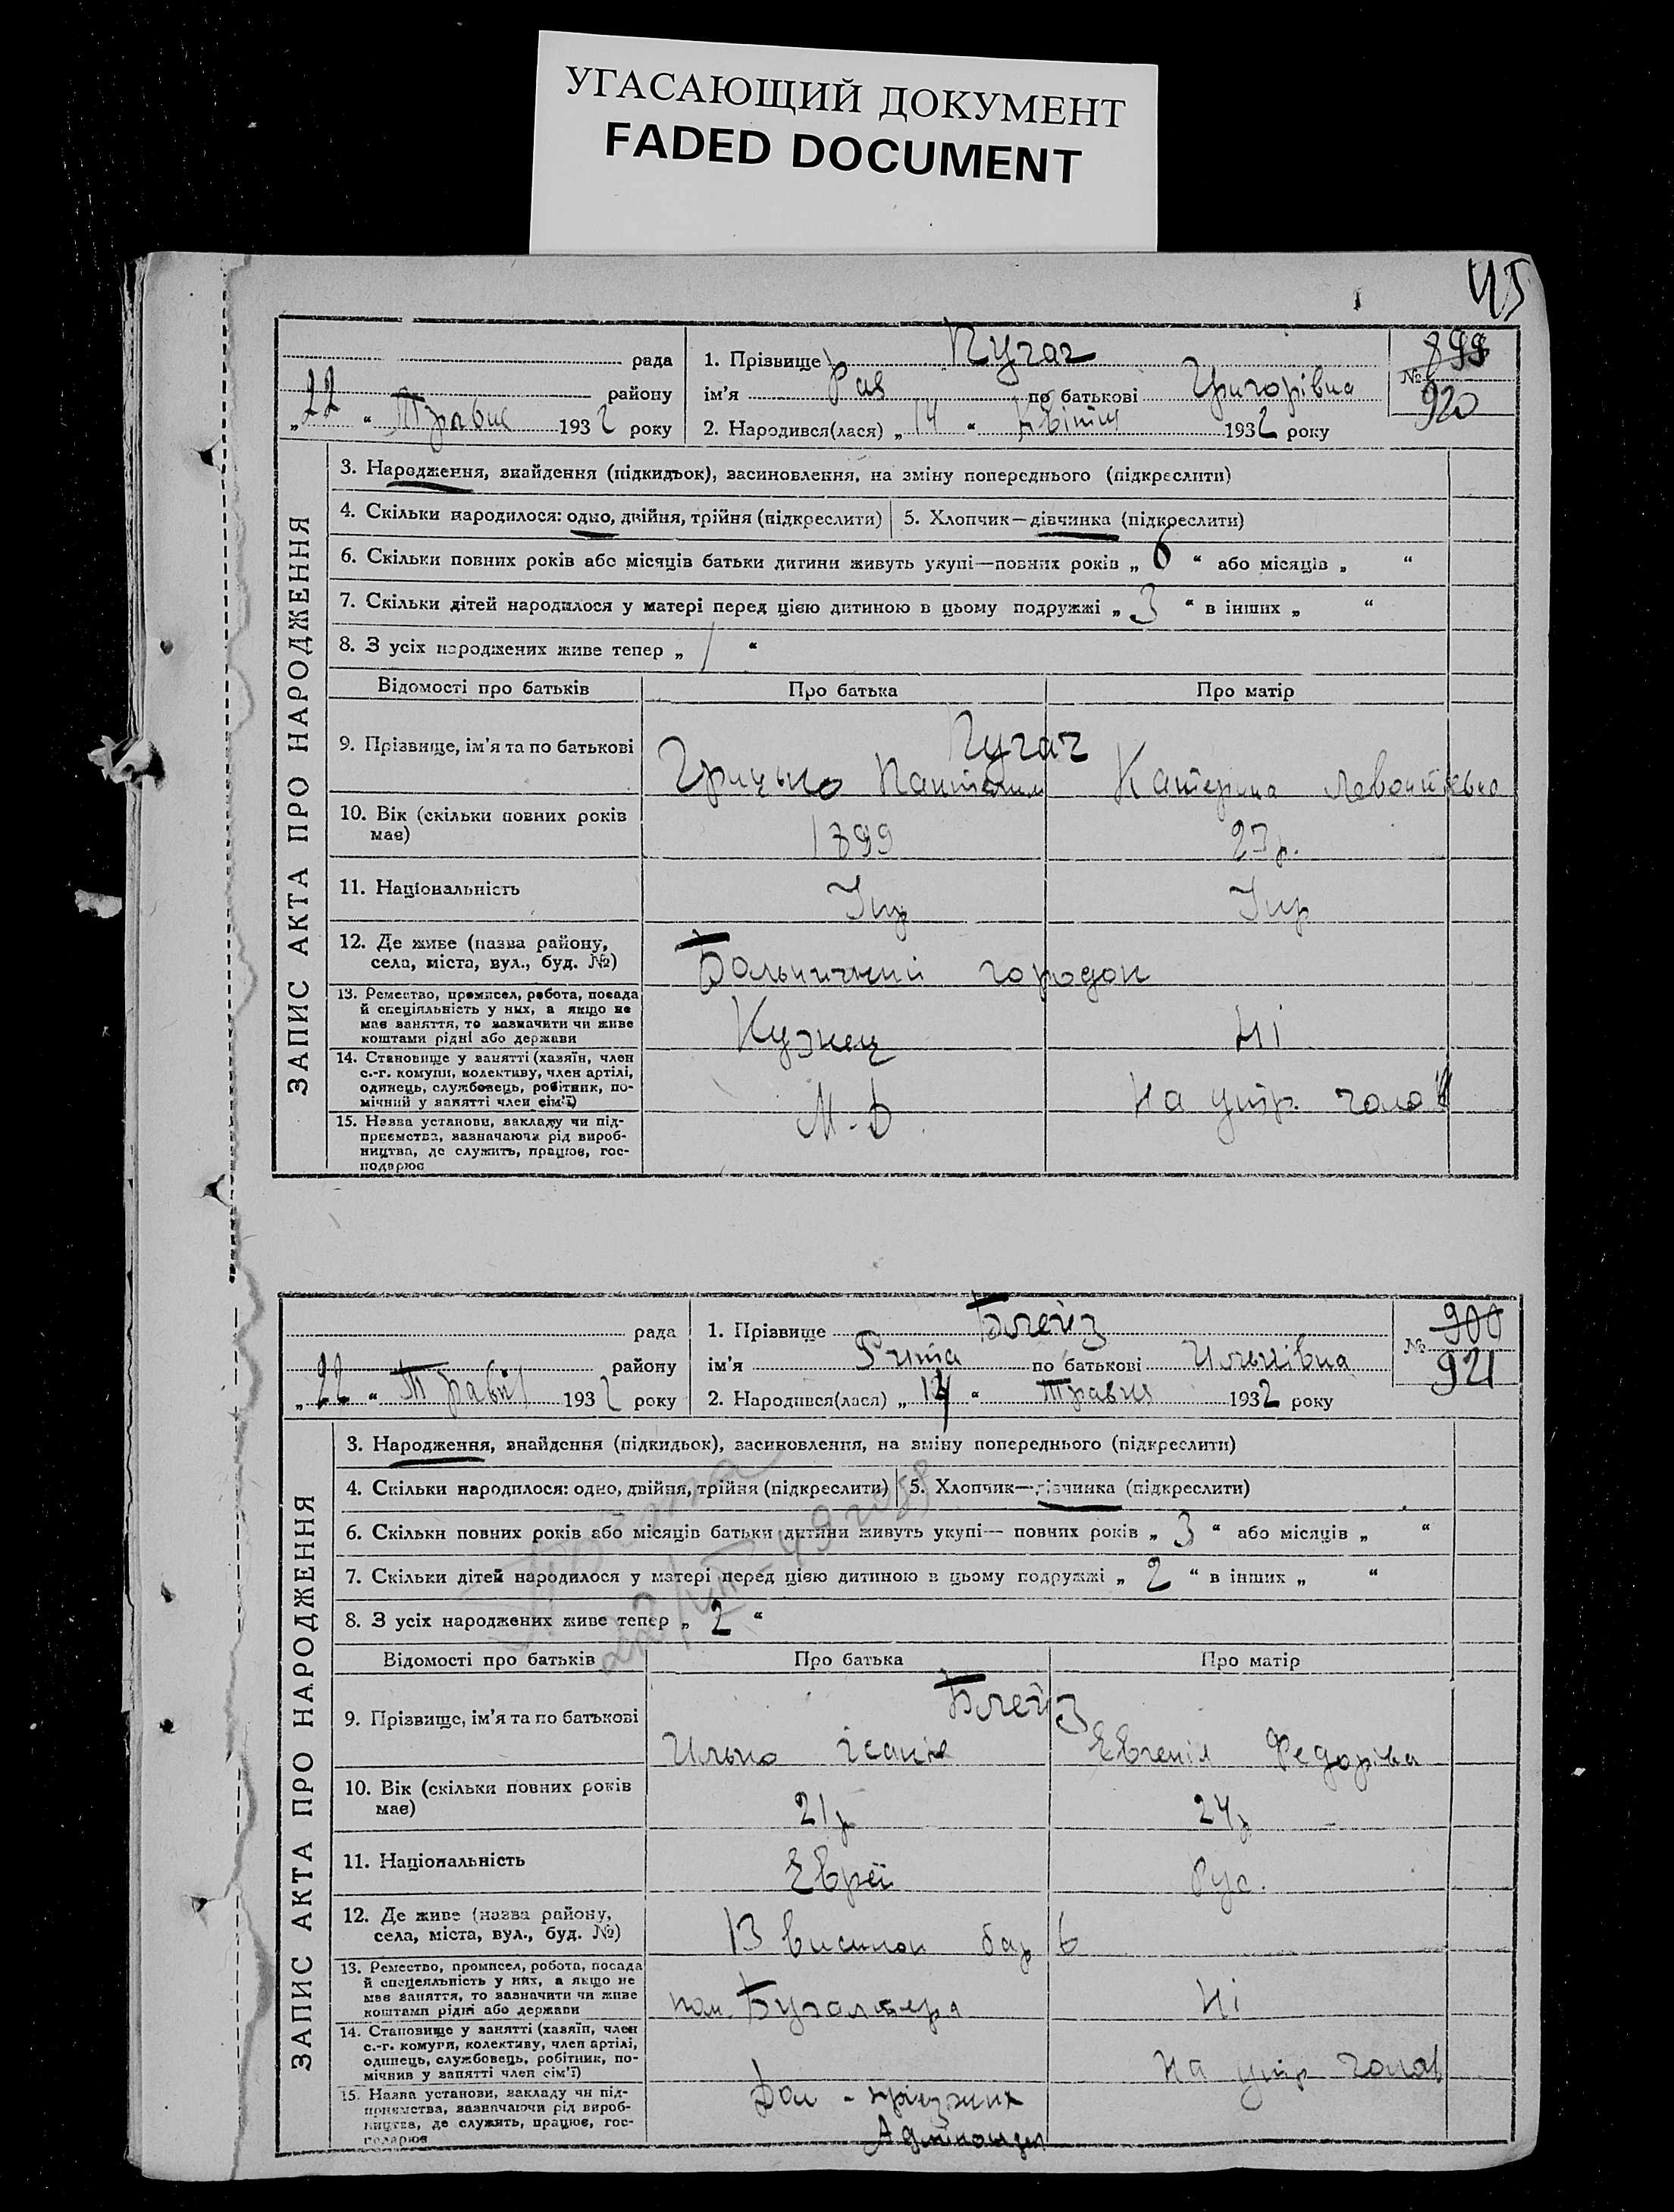 УГАСАЮЩИЙ ДОКУМЕНТ
FADED DOCUMENT
45
рада
района
району
„22“ Травня 1932 року
1. Прізвище Пугач
ім'я Рая по батькові Григорівна
2. Народився(лася) „14“ Квітня 1932 року
899
№
920
ЗАПИС АКТА ПРО НАРОДЖЕННЯ
3. Народження, знайдення (підкидьок), засиновлення, на зміну попереднього (підкреслити)
4. Скільки народилося: одно, двійня, трійня (підкреслити) 5. Хлопчик—дівчинка (підкреслити)
6. Скільки повних років або місяців батьки дитини живуть укупі—повних років „6“ або місяців „ “
7. Скільки дітей народилося у матері перед цією дитиною в цьому подружжі „3“ в інших „ “
8. З усіх народжених живе тепер „1“
Відомості про батьків Про батька Про матір
9. Прізвище, ім'я та по батькові
Пугач
Грицько Катерина
10. Вік (скільки повних років має)
1899 27 р.
11. Національність
Укр Укр
12. Де живе (назва району, села, міста, вул., буд. №)
Больничний городок
13. Ремество, промисел, робота, посада й спеціяльність у них, а якщо не має заняття, то зазначити чи живе коштами рідні або держави
Кузнец Ні
14. Становище у занятті (хазяїн, член с.-г. комуни, колективу, член артілі, одинець, службовець, робітник, помічний у занятті член сім'ї)
На утр. чолов
15. Назва установи, закладу чи підприємства, зазначаючи рід виробництва, де служить, працює, господарює
М-Д
рада
району
„22“ Травня 1932 року
1. Прізвище Блейз
ім'я Рита по батькові Ильківна
2. Народився(лася) „14“ травня 1932 року
900
№
921
ЗАПИС АКТА ПРО НАРОДЖЕННЯ
3. Народження, знайдення (підкидьок), засиновлення, на зміну попереднього (підкреслити)
4. Скільки народилося: одно, двійня, трійня (підкреслити) 5. Хлопчик—дівчинка (підкреслити)
6. Скільки повних років або місяців батьки дитини живуть укупі— повних років „3“ або місяців „ “
7. Скільки дітей народилося у матері перед цією дитиною в цьому подружжі „2“ в інших „ “
8. З усіх народжених живе тепер „2“
Відомості про батьків Про батька Про матір
9. Прізвище, ім'я та по батькові
Блейз
Илько Євгенія Федорівна
10. Вік (скільки повних років має)
21 р 24 р
11. Національність
Еврей Рус.
12. Де живе (назва району, села, міста, вул., буд. №)
13 виселок бар 6
13. Ремество, промисел, робота, посада й спеціяльність у них, а якщо не має заняття, то зазначити чи живе коштами рідні або держави
пом. Бугалтера Ні
14. Становище у занятті (хазяїн, член с.-г. комуни, колективу, член артілі, одинець, службовець, робітник, помічний у занятті член сім'ї)
На утр чолов
15. Назва установи, закладу чи підприємства, зазначаючи рід виробництва, де служить, працює, господарює
Дом - приезжих